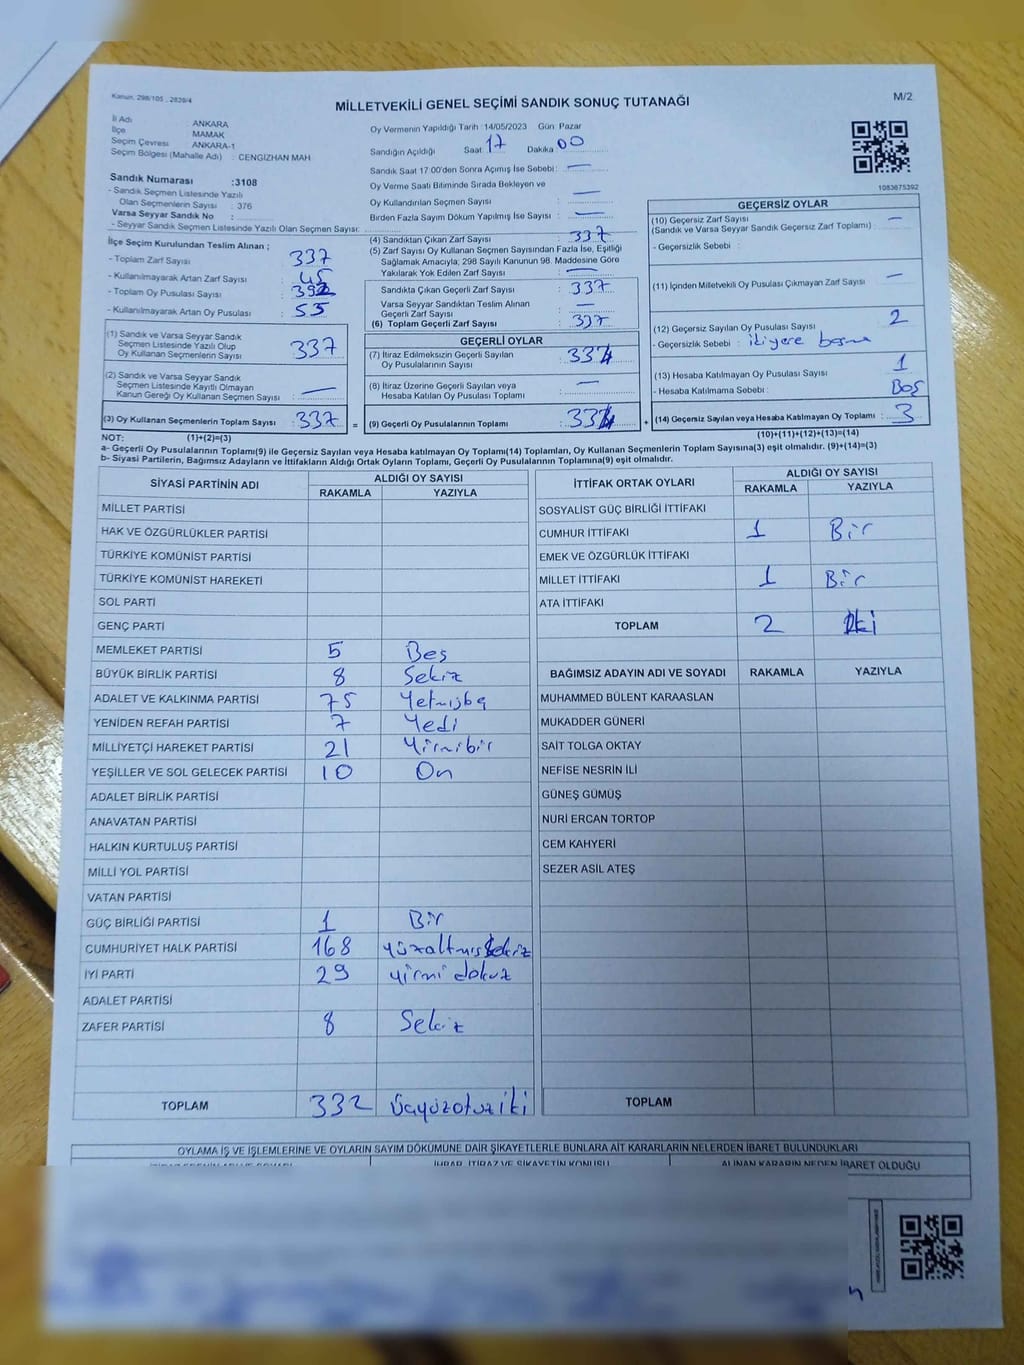 Kanun. 298/105 , 2839/4
MİLLETVEKİLİ GENEL SEÇİMİ SANDIK SONUÇ TUTANAĞI
M/2
İl Adı : ANKARA
İlçe : MAMAK
Seçim Çevresi : ANKARA-1
Seçim Bölgesi (Mahalle Adı) : CENGİZHAN MAH
Sandık Numarası :3108
- Sandık Seçmen Listesinde Yazılı
Olan Seçmenlerin Sayısı : 376
Varsa Seyyar Sandık No :
- Seyyar Sandık Seçmen Listesinde Yazılı Olan Seçmen Sayısı:
Oy Vermenin Yapıldığı Tarih :14/05/2023 Gün: Pazar
Sandığın Açıldığı Saat 17 Dakika 00
Sandık Saat 17:00'den Sonra Açımış İse Sebebi: —
Oy Verme Saati Bitiminde Sırada Bekleyen ve
Oy Kullandırılan Seçmen Sayısı —
Birden Fazla Sayım Döküm Yapılmış İse Sayısı : —
1083675392
İlçe Seçim Kurulundan Teslim Alınan ;
- Toplam Zarf Sayısı : 337
- Kullanılmayarak Artan Zarf Sayısı : 45
- Toplam Oy Pusulası Sayısı : 392
- Kullanılmayarak Artan Oy Pusulası : 55
(1) Sandık ve Varsa Seyyar Sandık
Seçmen Listesinde Yazılı Olup
Oy Kullanan Seçmenlerin Sayısı : 337
(2) Sandık ve Varsa Seyyar Sandık
Seçmen Listesinde Kayıtlı Olmayan
Kanun Gereği Oy Kullanan Seçmen Sayısı : —
(3) Oy Kullanan Seçmenlerin Toplam Sayısı : 337
(4) Sandıktan Çıkan Zarf Sayısı : 337
(5) Zarf Sayısı Oy Kullanan Seçmen Sayısından Fazla İse, Eşitliği
Sağlamak Amacıyla; 298 Sayılı Kanunun 98. Maddesine Göre
Yakılarak Yok Edilen Zarf Sayısı : —
Sandıkta Çıkan Geçerli Zarf Sayısı : 337
Varsa Seyyar Sandıktan Teslim Alınan
Geçerli Zarf Sayısı : —
(6) Toplam Geçerli Zarf Sayısı : 337
GEÇERLİ OYLAR
(7) İtiraz Edilmeksizin Geçerli Sayılan
Oy Pusulası Sayısı : 334
(8) İtiraz Üzerine Geçerli Sayılan veya
Hesaba Katılan Oy Pusulası Toplamı : —
= (9) Geçerli Oy Pusulalarının Toplamı : 334 +
GEÇERSİZ OYLAR
(10) Geçersiz Zarf Sayısı —
(Sandık ve Varsa Seyyar Sandık Geçersiz Zarf Toplamı) :
- Geçersizlik Sebebi :
(11) İçinden Milletvekili Oy Pusulası Çıkmayan Zarf Sayısı : —
(12) Geçersiz Sayılan Oy Pusulası Sayısı : 2
- Geçersizlik Sebebi :
(13) Hesaba Katılmayan Oy Pusulası Sayısı : 1
- Hesaba Katılmama Sebebi : Boş
(14) Geçersiz Sayılan veya Hesaba Katılmayan Oy Toplamı : 3
NOT: (1)+(2)=(3)
(10)+(11)+(12)+(13)=(14)
a- Geçerli Oy Pusulalarının Toplamı(9) ile Geçersiz Sayılan veya Hesaba katılmayan Oy Toplamı(14) Toplamları, Oy Kullanan Seçmenlerin Toplam Sayısına(3) eşit olmalıdır. (9)+(14)=(3)
b- Siyasi Partilerin, Bağımsız Adayların ve İttifakların Aldığı Ortak Oyların Toplamı, Geçerli Oy Pusulalarının Toplamına(9) eşit olmalıdır.
SİYASİ PARTİNİN ADI ALDIĞI OY SAYISI
RAKAMLA YAZIYLA
MİLLET PARTİSİ
HAK VE ÖZGÜRLÜKLER PARTİSİ
TÜRKİYE KOMÜNİST PARTİSİ
TÜRKİYE KOMÜNİST HAREKETİ
SOL PARTİ
GENÇ PARTİ
MEMLEKET PARTİSİ 5 Beş
BÜYÜK BİRLİK PARTİSİ 8 Sekiz
ADALET VE KALKINMA PARTİSİ 75 Yetmişbeş
YENİDEN REFAH PARTİSİ 7 Yedi
MİLLİYETÇİ HAREKET PARTİSİ 21 Yirmibir
YEŞİLLER VE SOL GELECEK PARTİSİ 10 On
ADALET BİRLİK PARTİSİ
ANAVATAN PARTİSİ
HALKIN KURTULUŞ PARTİSİ
MİLLİ YOL PARTİSİ
VATAN PARTİSİ
GÜÇ BİRLİĞİ PARTİSİ 1 Bir
CUMHURİYET HALK PARTİSİ 168 yüzaltmışsekiz
İYİ PARTİ 29 yirmi dokuz
ADALET PARTİSİ
ZAFER PARTİSİ 8 Sekiz
TOPLAM 332 üçyüzotuziki
İTTİFAK ORTAK OYLARI ALDIĞI OY SAYISI
RAKAMLA YAZIYLA
SOSYALİST GÜÇ BİRLİĞİ İTTİFAKI
CUMHUR İTTİFAKI 1 Bir
EMEK VE ÖZGÜRLÜK İTTİFAKI
MİLLET İTTİFAKI 1 Bir
ATA İTTİFAKI
TOPLAM 2 İki
BAĞIMSIZ ADAYIN ADI VE SOYADI RAKAMLA YAZIYLA
MUHAMMED BÜLENT KARAASLAN
MUKADDER GÜNERİ
SAİT TOLGA OKTAY
NEFİSE NESRİN İLİ
GÜNEŞ GÜMÜŞ
NURİ ERCAN TORTOP
CEM KAHYERİ
SEZER ASİL ATEŞ
TOPLAM
OYLAMA İŞ VE İŞLEMLERİNE VE OYLARIN SAYIM DÖKÜMÜNE DAİR ŞİKAYETLERLE BUNLARA AİT KARARLARIN NELERDEN İBARET BULUNDUKLARI
İHBAR, İTİRAZ VE ŞİKAYETİN KONUSU ALINAN KARARIN NEDEN İBARET OLDUĞU